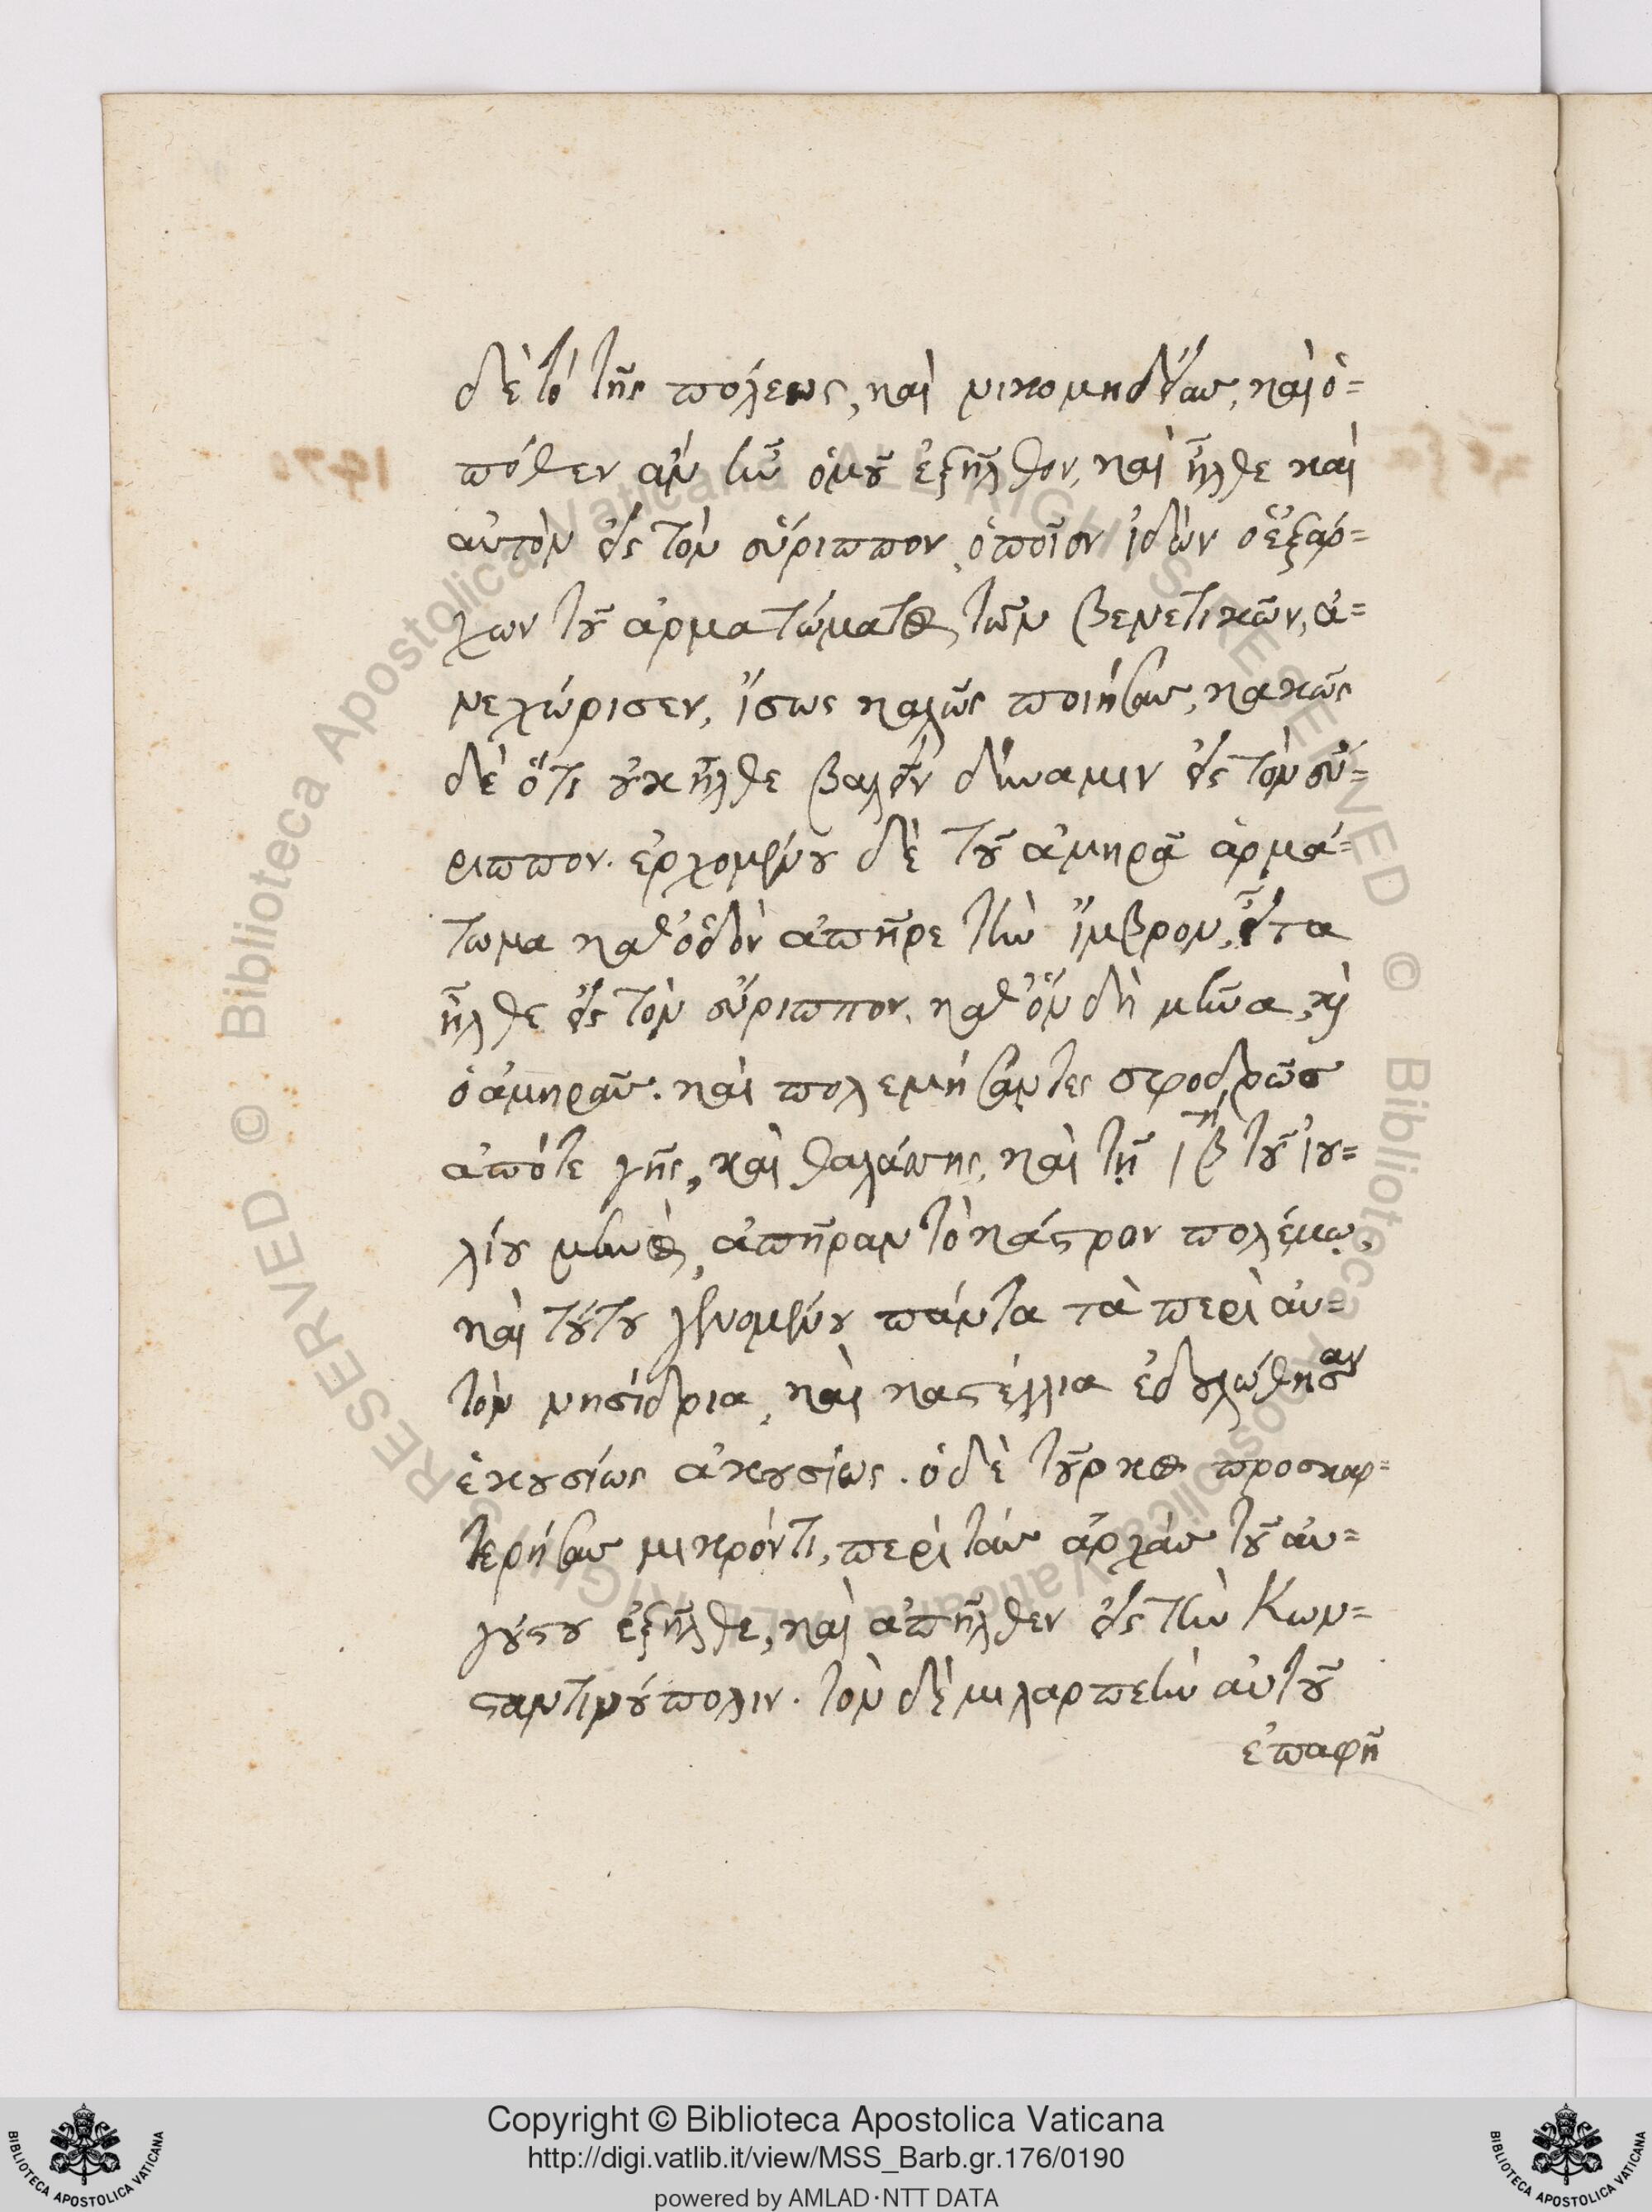 δὲ τὸ τῆς πόλεως, καὶ νικομηδείας, καὶ ὁ=
πόθεν ἀν ἦν ὁμοῦ ἐξῆλθον, καὶ ἦλθε καὶ
αὐτὸν εἰς τὸν εὔριππον, ὁποῖον ἰδὼν ὁ ἐξάρ=
χων τοῦ ἀρματώματος τῶν βενετικῶν, ἀ=
νεχώρισεν, ἴσως καλῶς ποιήσας, κακῶς
δὲ ὅτι οὐκ ἦλθε βαλεῖν δύναμιν εἰς τὸν εὔ=
ριππον. ἐρχομένου δὲ τοῦ ἀμηρᾶ ἁρμά=
τωμα καθ' ὁδὸν ἀπῆρε τὴν ἴμβρον, εἶτα
ἦλθε εἰς τὸν εὔριππον, καθ' ὃν δὴ μῆνα, καὶ
ὁ ἀμηρᾶς. καὶ πολεμήσαντες σφοδρῶς
ἀπότε γῆς, καὶ θαλάσσης, καὶ τῇ ιβ τη τοῦ ἰου=
λίου μηνὸς, ἀπῆραν τὸ κάστρον πολέμῳ,
καὶ τούτου γενομένου πάντα τὰ περὶ αὐ=
τὸν νησίδρια, καὶ καστέλλια ἐδουλώθησαν
ἑκουσίως ἀκουσίως. ὁ δὲ τοῦρκος προσκαρ=
τερήσας μικρόντι, περὶ τὰς ἀρχὰς τοῦ αὐ=
γούστου ἐξῆλθε, καὶ ἀπῆλθεν εἰς τὴν Κων=
σταντινούπολιν. τὸν δὲ μιλαρπεῒν αὐτοῦ
ἐπαφῆ
Copyright © Biblioteca Apostolica Vaticana
http://digi.vatlib.it/view/MSS_Barb.gr.176/0190
powered by AMLAD·NTT DATA